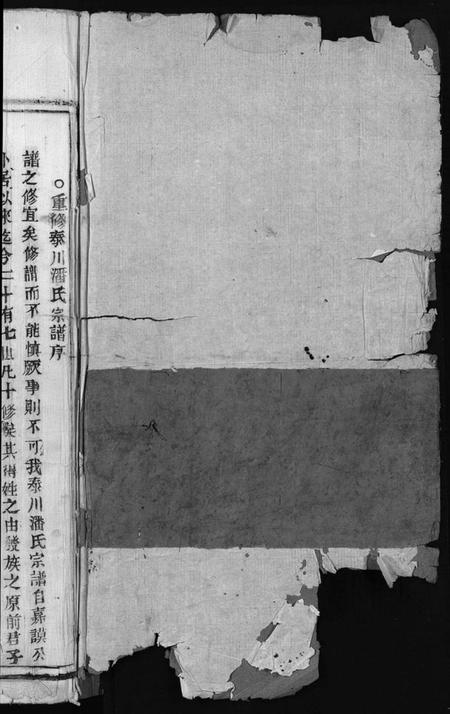 ○重修泰川潘氏宗譜序
譜之修宜矣修譜而不能慎厥事則不可我泰川潘氏宗譜自嘉謨公
卜居以來迄今二十有七世凡十修矣其得姓之由發族之原前君子